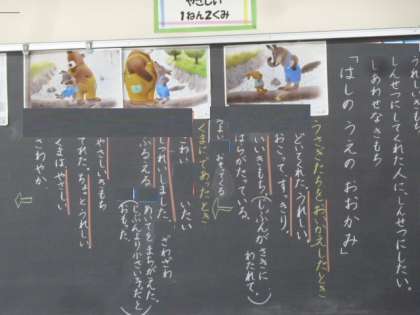 やさしい
1ねん2くみ
うれしいきもち
しんせつにしてくれた人に、しんせつにする
しあわせなきもち
「はしの うえの おおかみ」
うさぎたちをおいかえしたとき
どいてくれた。うれしい
おこって、すっきり
いいきもち(じぶんがさきに、わたれて。)
はらがたっている。
くまにであったとき
つよい
しつれいしました
こわい いたい
ふるえる ざわざわ
あいてをまちがえた。
じぶんより小さい子だと
おもった。
やさしいきもち
てれた。ちょっとうれしい
くまは、やさしい
さわやか。